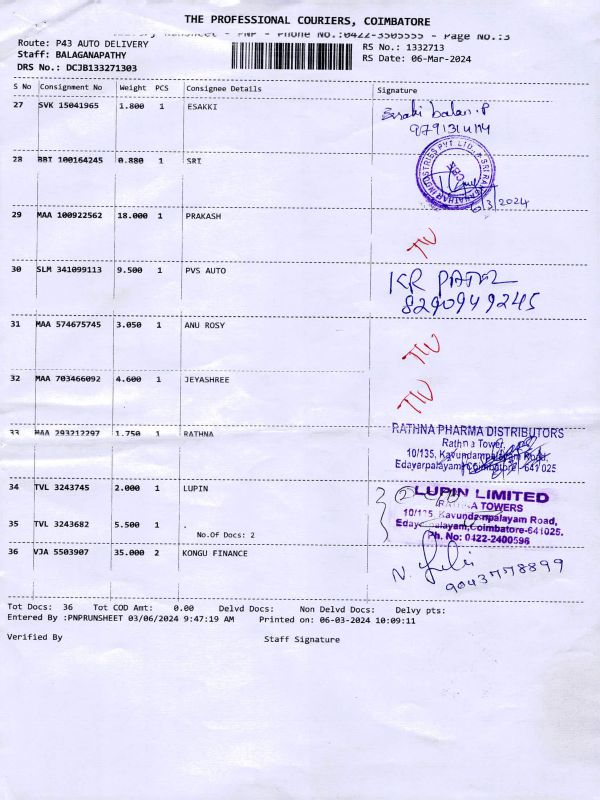 THE PROFESSIONAL COURIERS, COIMBATORE
Delivery Runsheet - PNP - Phone No.:0422-3505555 - Page No.:3
Route: P43 AUTO DELIVERY
RS No.: 1332713
Staff: BALAGANAPATHY
RS Date: 06-Mar-2024
DRS No.: DCJB133271303
S No Consignment No Weight PCS Consignee Details Signature
27 SVK 15041965 1.800 1 ESAKKI
Esaki balan.P
28 BBT 100164245 0.880 1 SRI
6/3/2024
29 MAA 100922562 18.000 1 PRAKASH
30 SLM 341099113 9.500 1 PVS AUTO
KR PATEL
8290949245
31 MAA 574675745 3.050 1 ANU ROSY
32 MAA 703466092 4.600 1 JEYASHREE
33 MAA 293212297 1.750 1 RATHNA
RATHNA PHARMA DISTRIBUTORS
Rathna Tower,
10/135, Kavundampalayam Road,
Edayarpalayam, Coimbatore - 641 025
34 TVL 3243745 2.000 1 LUPIN
LUPIN LIMITED
RATHNA TOWERS
10/135, Kavundampalayam Road,
Edayarpalayam, Coimbatore-641025.
Ph. No: 0422-2400596
35 TVL 3243682 5.500 1 .
No.Of Docs: 2
36 VJA 5503907 35.000 2 KONGU FINANCE
Tot Docs: 36 Tot COD Amt: 0.00 Delvd Docs: Non Delvd Docs: Delvy pts:
Entered By :PNPRUNSHEET 03/06/2024 9:47:19 AM Printed on: 06-03-2024 10:09:11
Verified By Staff Signature